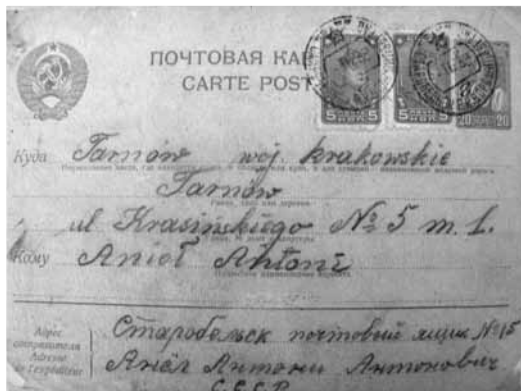 ПОЧТОВАЯ КА
CARTE POST
5 5 5 5
20 20
Куда Tarnów woj. krakowskie
Tarnów
ul Krasińskiego № 5 m. 1.
Кому Anioł Antoni
Адрес отправителя Adresse de l'expéditeur
Старобельск почтовый ящик №15
Аньёл Антони Антонович
С.С.С.Р.